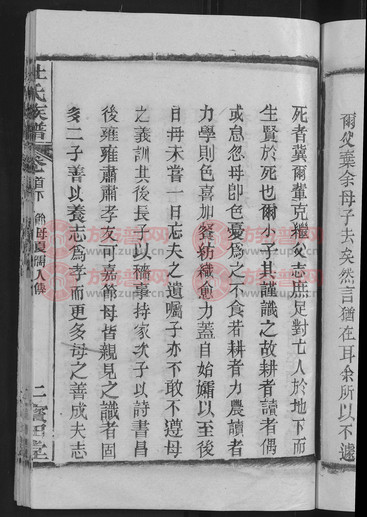 爾父棄余母子去矣然言猶在耳余所以不遽
死者冀爾輩克繼父志庶足對亡人於地下而
生賢於死也爾小子其謹識之故耕者讀者偶
或怠忽母卽色憂為之不食若耕者力農讀者
力學則色喜加餐紡織愈力蓋自始孀以至後
日母未嘗一日忘夫之遺囑子亦不敢不遵母
之義訓其後長子以穡事持家次子以詩書昌
後雍雍肅肅孝友可嘉節母皆親見之識者固
多二子善以養志為孝而更多母之善成夫志
杜氏族譜
卷首下
節母夏孺人傳
二
寶田堂
族譜普查网
zupu.cn